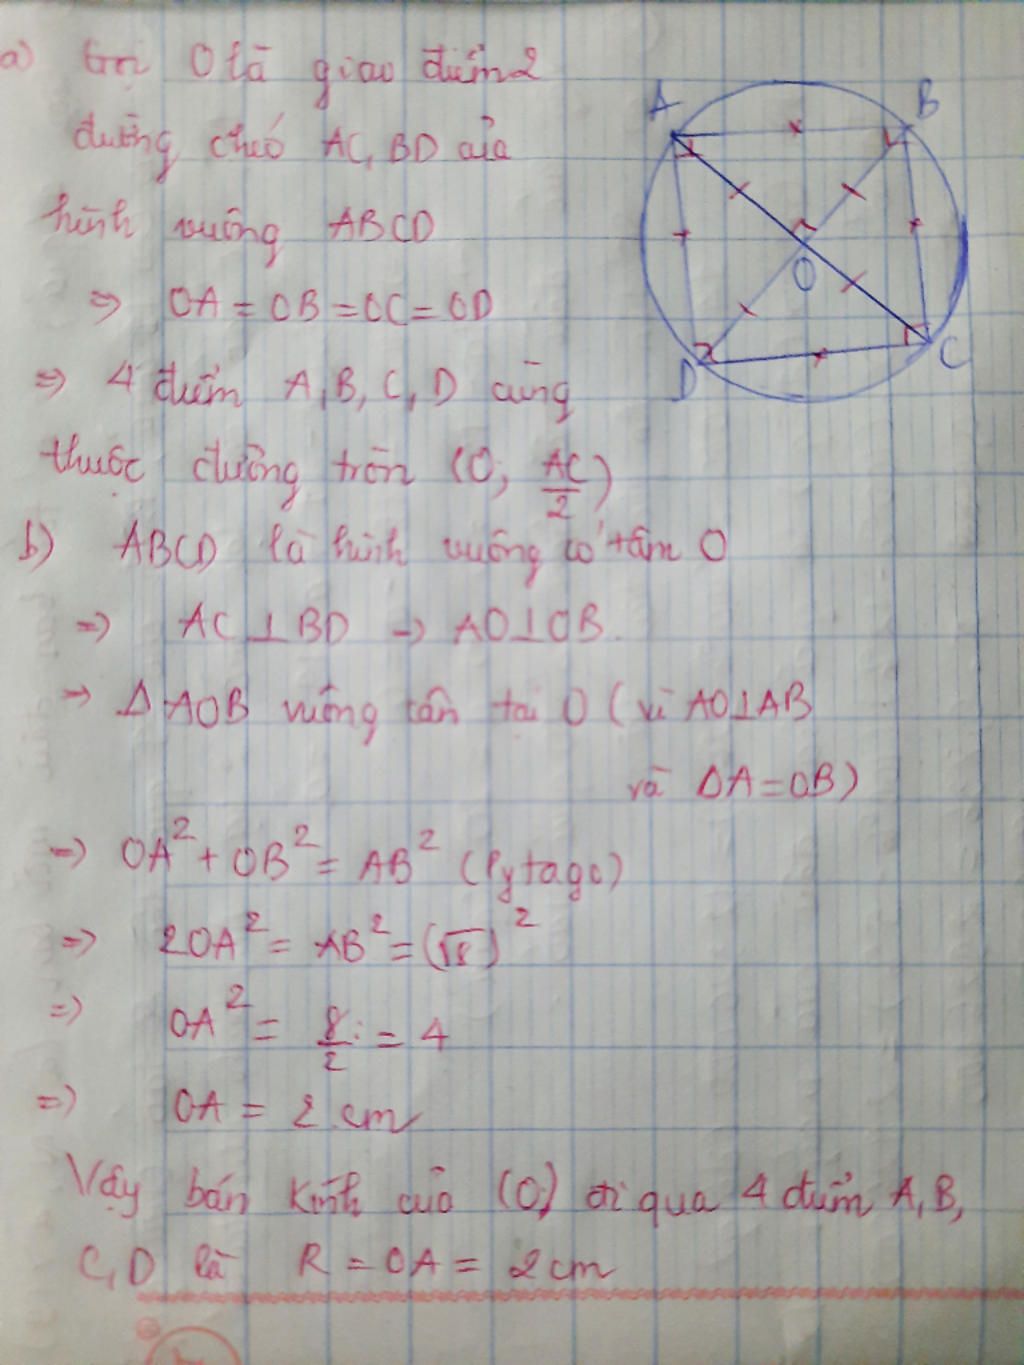 a) Gọi O là giao điểm 2
đường chéo AC, BD của
hình vuông ABCD
=> OA = OB = OC = OD
=> 4 điểm A, B, C, D cùng
thuộc đường tròn (O; AC/2)
A B
O
D C
b) ABCD là hình vuông có tâm O
=> AC ⊥ BD -> AO ⊥ OB.
-> Δ AOB vuông cân tại O (vì AO ⊥ AB
và OA = OB)
=> OA² + OB² = AB² (Pytago)
=> 2OA² = AB² = (√8)²
=> OA² = 8/2 = 4
=> OA = 2 cm
Vậy bán kính của (O) đi qua 4 điểm A, B,
C, D là R = OA = 2cm